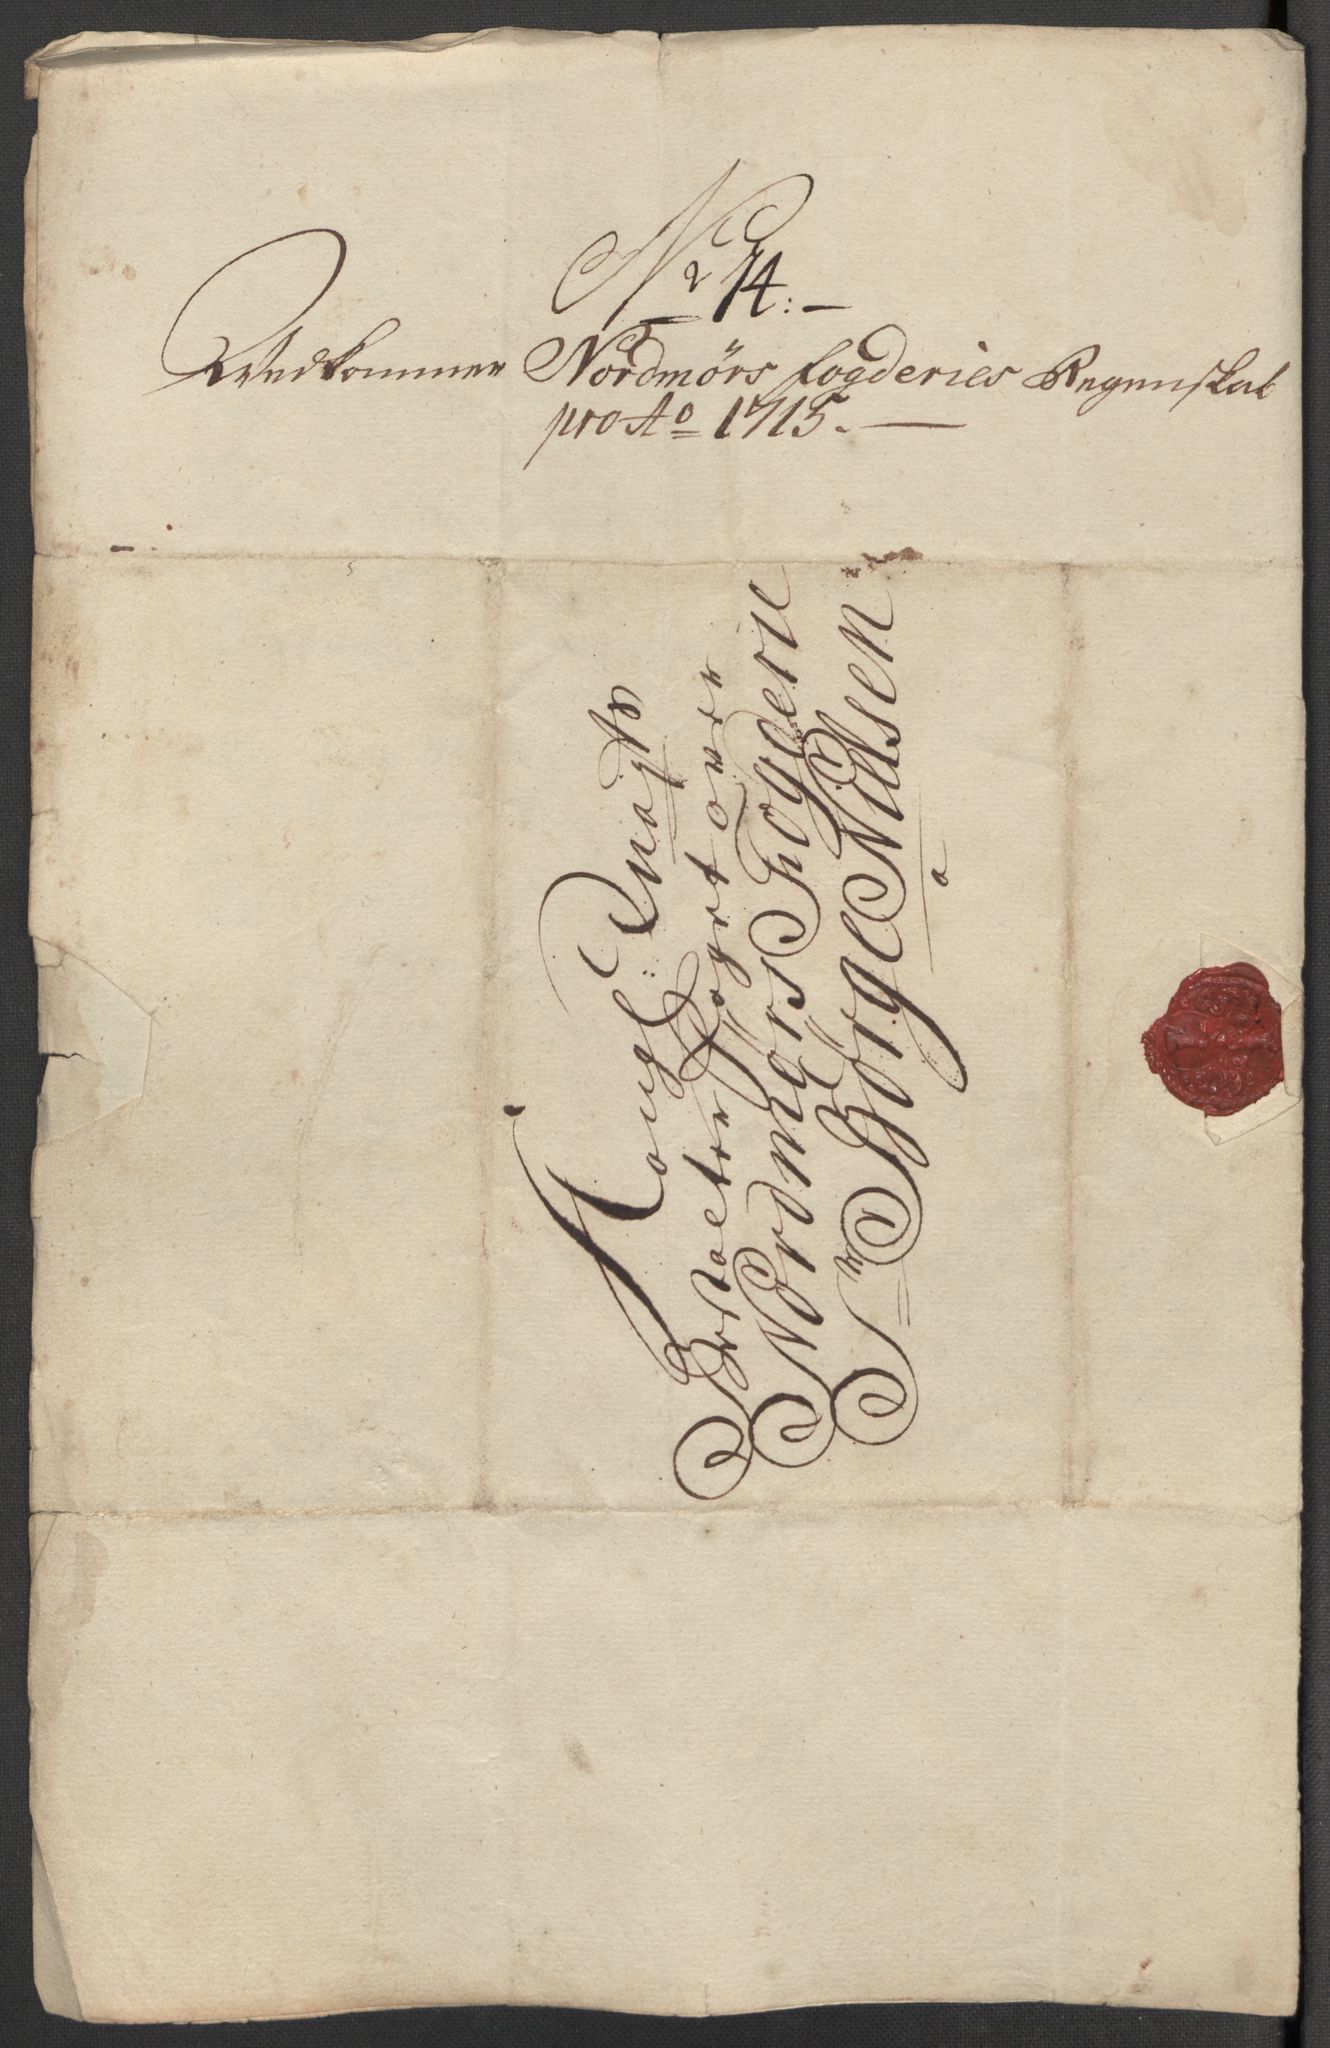 No 14:—
Vedkommer Nordmørs fogderies Regenskab
pro Ao 1715.—
Kongl: Mayts
Bestalter Fogt over
Nordmørs Fogderie
Sr Børge Nilsen
a